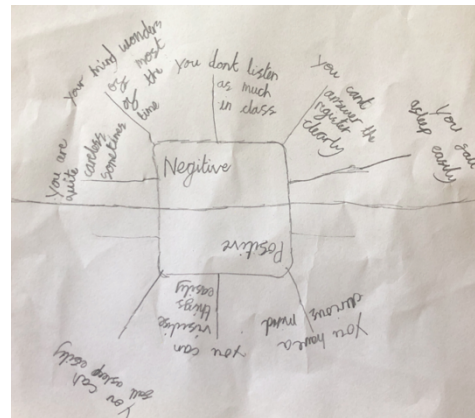 You are
quite
careless
sometimes
Your mind wonders
of most
of the
time
You dont listen
as much
in class
You cant
answer the
rigister
clearly
You fall
asleep easily
Negitive
Positive
You have a
curious mind
you can
visilise
things
easily
You can
fall asleep easily